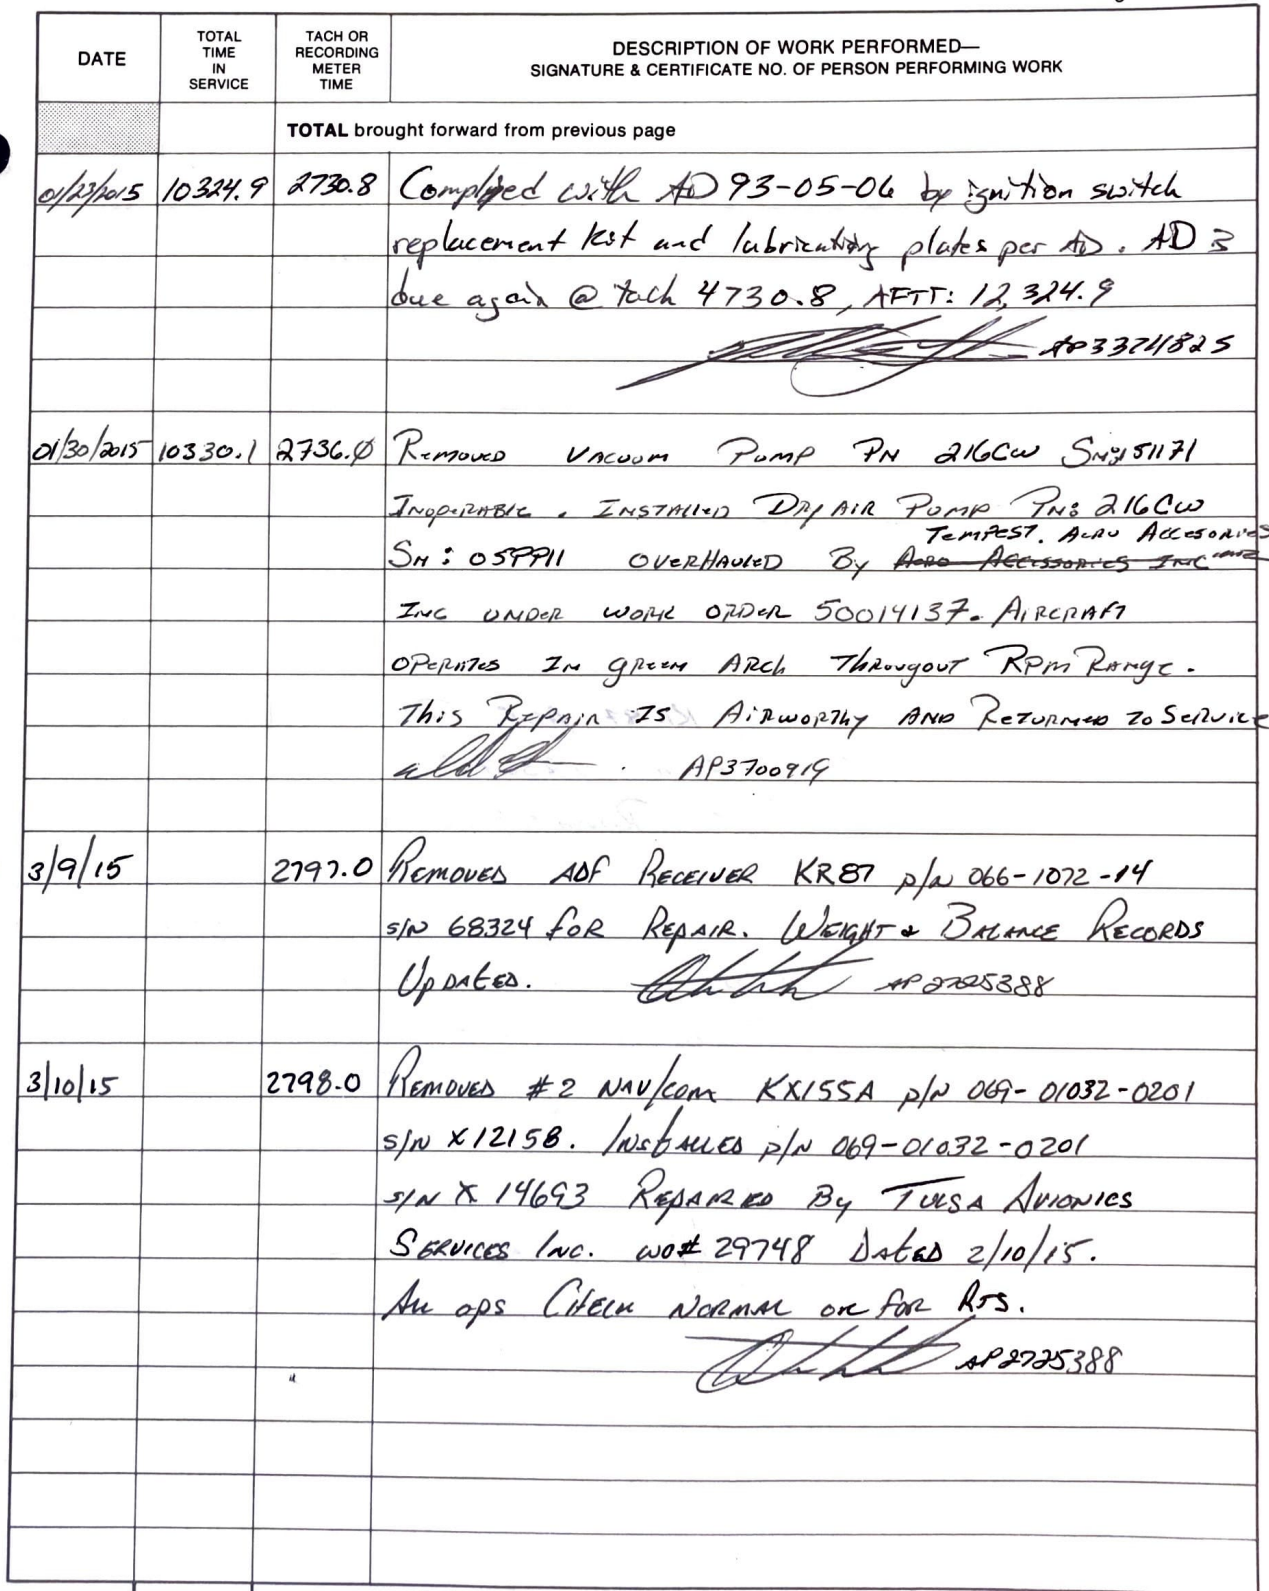 DATE
TOTAL TIME IN SERVICE
TACH OR RECORDING METER TIME
DESCRIPTION OF WORK PERFORMED—
SIGNATURE & CERTIFICATE NO. OF PERSON PERFORMING WORK
TOTAL brought forward from previous page
01/23/2015 10324.9 2730.8 Complied with AD 93-05-06 by ignition switch
replacement test and lubricating plates per AD. AD is
due again @ tach 4730.8, AFTT: 12,324.9
AP3374825
01/30/2015 10330.1 2736.0 Removed Vacuum Pump PN 216CW SN: 51171
Inoperable. Installed Dry Air Pump PN: 216CW
Tempest. Aero Accesories
SN: 05PP11 Overhauled By Aero Accessories Inc
Inc under work order 50014137. Aircraft
operates In green Arch Througout RPM Range.
This Repair Is Airworthy And Returned to Service
AP3700919
3/9/15 2797.0 Removed ADF Receiver KR87 p/n 066-1072-14
s/n 68324 for Repair. Weight & Balance Records
Updated. AP2725388
3/10/15 2798.0 Removed #2 NAV/COM KX155A p/n 069-01032-0201
s/n X12158. Installed p/n 069-01032-0201
s/n X 14693 Repaired By Tulsa Avionics
Services Inc. WO# 29748 Dated 2/10/15.
All ops Check Normal OK for RTS.
AP2725388